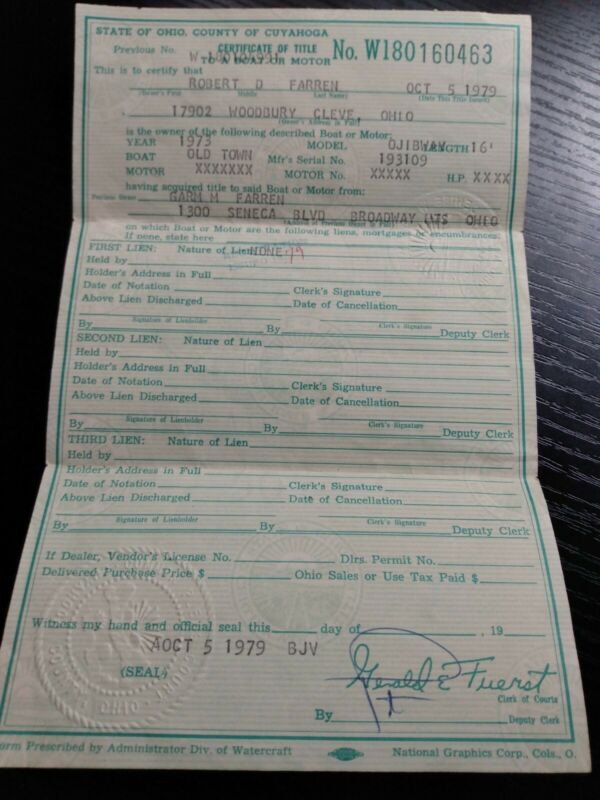 STATE OF OHIO, COUNTY OF CUYAHOGA
Previous No. W CERTIFICATE OF TITLE No. W180160463
TO A BOAT OR MOTOR
This is to certify that
ROBERT D FARREN OCT 5 1979
(Owner's First Middle Last Name) (Date This Title Issued)
17902 WOODBURY CLEVE, OHIO
(Owner's Address in Full)
is the owner of the following described Boat or Motor:
YEAR 1973 MODEL OJIBWAY LENGTH 16'
BOAT OLD TOWN Mfr's Serial No. 193109
MOTOR XXXXXXX MOTOR No. XXXXX H.P. XXXX
having acquired title to said Boat or Motor from:
Previous Owner M FARREN
1300 SENECA BLVD BROADWAY HTS OHIO
on which Boat or Motor are the following liens, mortgages or encumbrances.
If none, state here
FIRST LIEN: Nature of Lien NONE
Held by
Holder's Address in Full
Date of Notation Clerk's Signature
Above Lien Discharged Date of Cancellation
By By Deputy Clerk
Signature of Lienholder Clerk's Signature
SECOND LIEN: Nature of Lien
Held by
Holder's Address in Full
Date of Notation Clerk's Signature
Above Lien Discharged Date of Cancellation
By By Deputy Clerk
Signature of Lienholder Clerk's Signature
THIRD LIEN: Nature of Lien
Held by
Holder's Address in Full
Date of Notation Clerk's Signature
Above Lien Discharged Date of Cancellation
By By Deputy Clerk
Signature of Lienholder Clerk's Signature
If Dealer, Vendor's License No. Dlrs. Permit No.
Delivered Purchase Price $ Ohio Sales or Use Tax Paid $
Witness my hand and official seal this day of , 19
AOCT 5 1979 BJV
(SEAL) Gerald E Fuerst
Clerk of Courts
By Deputy Clerk
orm Prescribed by Administrator Div. of Watercraft National Graphics Corp., Cols., O.